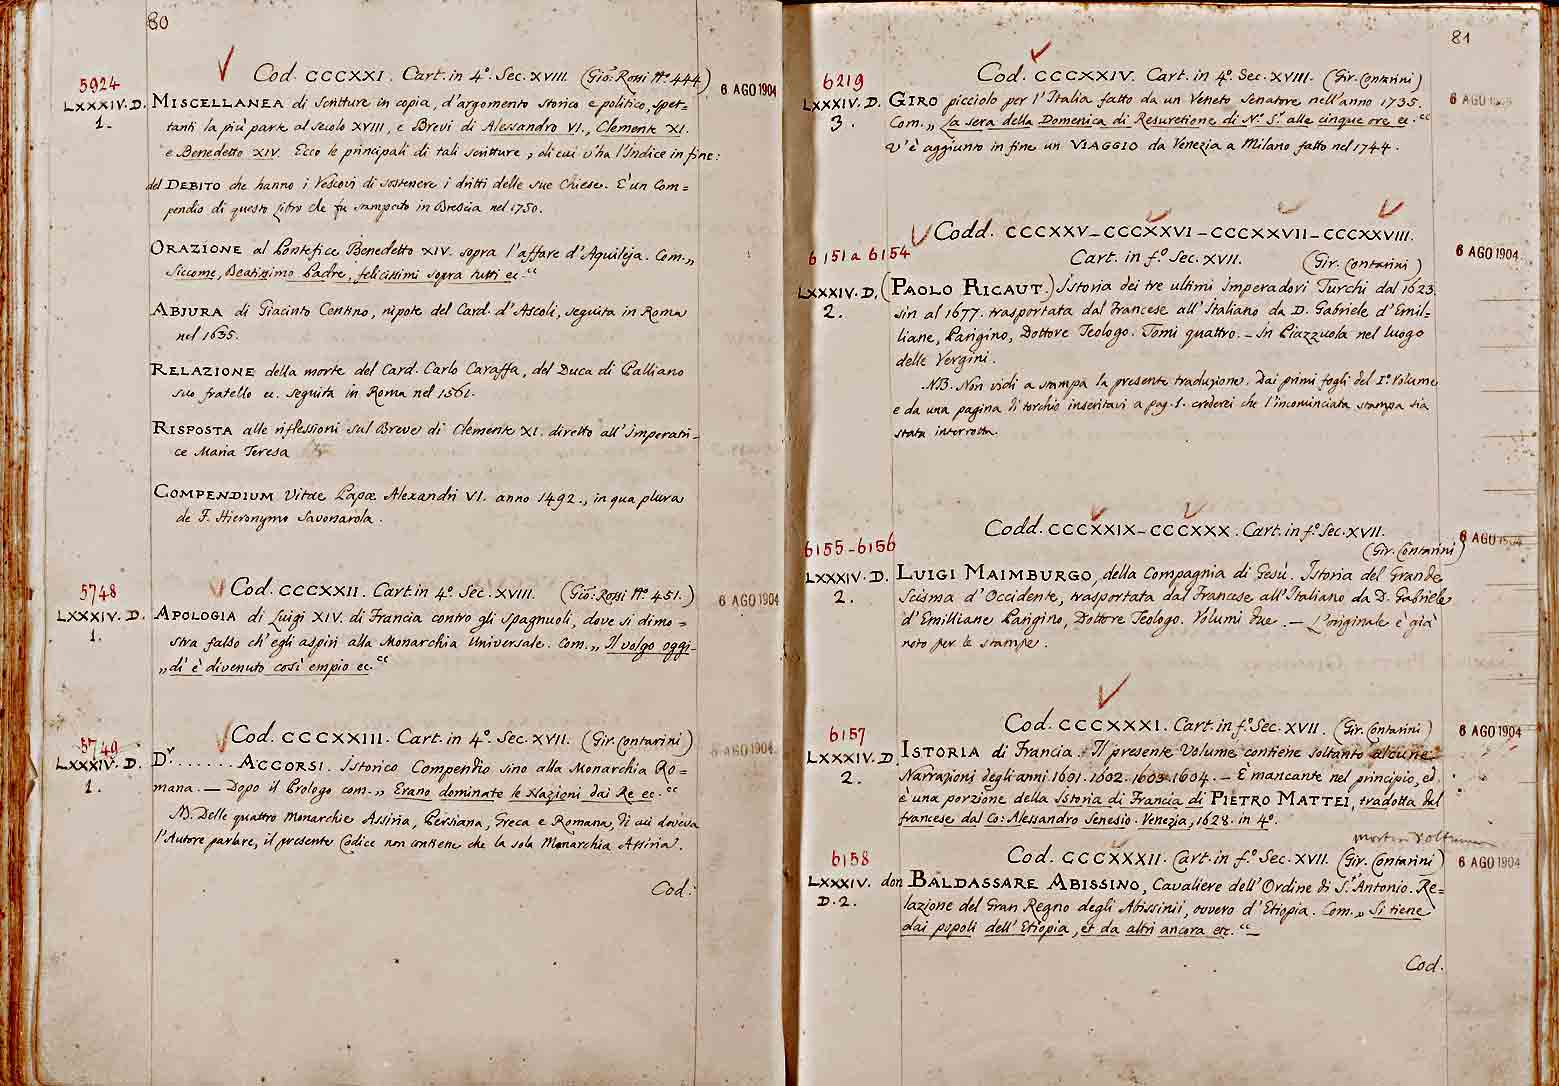 80
5924
LXXXIV. D.
1.
Cod. CCCXXI. Cart. in 4.° Sec. XVIII. (Gio: Rossi N.° 444)
6 AGO 1904
MISCELLANEA di scritture in copia, d'argomento storico e politico, spet=
tanti la più parte al secolo XVIII, e Brevi di Alessandro VI., Clemente XI.
e Benedetto XIV. Ecco le principali di tali scritture, di cui v'ha l'Indice in fine:
del DEBITO che hanno i Vescovi di sostenere i dritti delle sue Chiese. E' un Com=
pendio di questo Libro che fu stampato in Brescia nel 1750.
ORAZIONE al Pontefice Benedetto XIV. sopra l'affare d'Aquileja. Com. „
Siccome, Beatissimo Padre, felicissimi sopra tutti ec. “
ABJURA di Giacinto Centino, nipote del Card. d'Ascoli, seguita in Roma
nel 1635.
RELAZIONE della morte del Card. Carlo Caraffa, del Duca di Palliano
suo fratello ec. seguita in Roma nel 1561.
RISPOSTA alle riflessioni sul Breve di Clemente XI. diretto all'Imperatri=
ce Maria Teresa
COMPENDIUM Vitae Papæ Alexandri VI. anno 1492., in qua plura
de F. Hieronymo Savonarola.
5748
LXXXIV. D.
1.
Cod. CCCXXII. Cart. in 4.° Sec. XVIII. (Gio: Rossi N.° 451.)
6 AGO 1904
APOLOGIA di Luigi XIV. di Francia contro gli Spagnuoli, dove si dimo=
stra falso ch'egli aspiri alla Monarchia Universale. Com. „ Il volgo oggi-
„dì è divenuto così empio ec. “
5749
LXXXIV. D.
1.
Cod. CCCXXIII. Cart. in 4.° Sec. XVII. (Gir. Contarini)
6 AGO 1904
D.r ...... ACCORSI. Istorico Compendio sino alla Monarchia Ro=
mana. — Dopo il Prologo com. „ Erano dominate le Nazioni dai Re ec. “
NB. Delle quattro Monarchie Assiria, Persiana, Greca e Romana, di cui doveva
l'Autore parlare, il presente Codice non contiene che la sola Monarchia Assiria.
Cod:
81
6219
LXXXIV. D.
3.
Cod. CCCXXIV. Cart. in 4.° Sec. XVIII. (Gir. Contarini)
6 AGO
GIRO picciolo per l'Italia fatto da un Veneto Senatore nell'anno 1735.
Com. „ La sera della Domenica di Resuretione di N.° S.r alle cinque ore ec. “
V'è aggiunto in fine un VIAGGIO da Venezia a Milano fatto nel 1744.
6151 a 6154
LXXXIV. D.
2.
Codd. CCCXXV – CCCXXVI – CCCXXVII – CCCXXVIII.
6 AGO 1904
Cart. in f.° Sec. XVII. (Gir. Contarini)
(PAOLO RICAUT.) Istoria dei tre ultimi Imperadori Turchi dal 1623.
sin al 1677. trasportata dal Francese all'Italiano da D. Gabriele d'Emil=
liane, Parigino, Dottore Teologo. Tomi quattro. – In Piazzuola nel luogo
delle Vergini.
NB. Non vidi a stampa la presente traduzione. Dai primi fogli del I.° Volume
e da una pagina di torchio inseritavi a pag. 1. crederei che l'incominciata stampa sia
stata interrotta.
6155-6156
LXXXIV. D.
2.
Codd. CCCXXIX – CCCXXX. Cart. in f.° Sec. XVII.
(Gir. Contarini)
6 AGO 1904
LUIGI MAIMBURGO, della Compagnia di Gesù. Istoria del Grande
Scisma d'Occidente, trasportata dal Francese all'Italiano da D. Gabriele
d'Emilliane Parigino, Dottore Teologo. Volumi due. — L'originale è già
noto per le stampe.
6157
LXXXIV. D
2.
Cod. CCCXXXI. Cart. in f.° Sec. XVII. (Gir. Contarini)
6 AGO 1904
ISTORIA di Francia. Il presente Volume contiene soltanto alcune
Narrazioni degli anni 1601. 1602. 1603. 1604. – È mancante nel principio, ed
è una porzione della Istoria di Francia di PIETRO MATTEI, tradotta dal
francese dal Co: Alessandro Senesio. Venezia, 1628. in 4.°
6158
LXXXIV.
D. 2.
Cod. CCCXXXII. Cart. in f.° Sec. XVII. (Gir. Contarini)
6 AGO 1904
don BALDASSARE ABISSINO, Cavaliere dell'Ordine di S.t Antonio. Re=
lazione del Gran Regno degli Abissinii, ovvero d'Etiopia. Com. „ Si tiene
dai popoli dell'Etiopia, et da altri ancora etc. “
Cod.